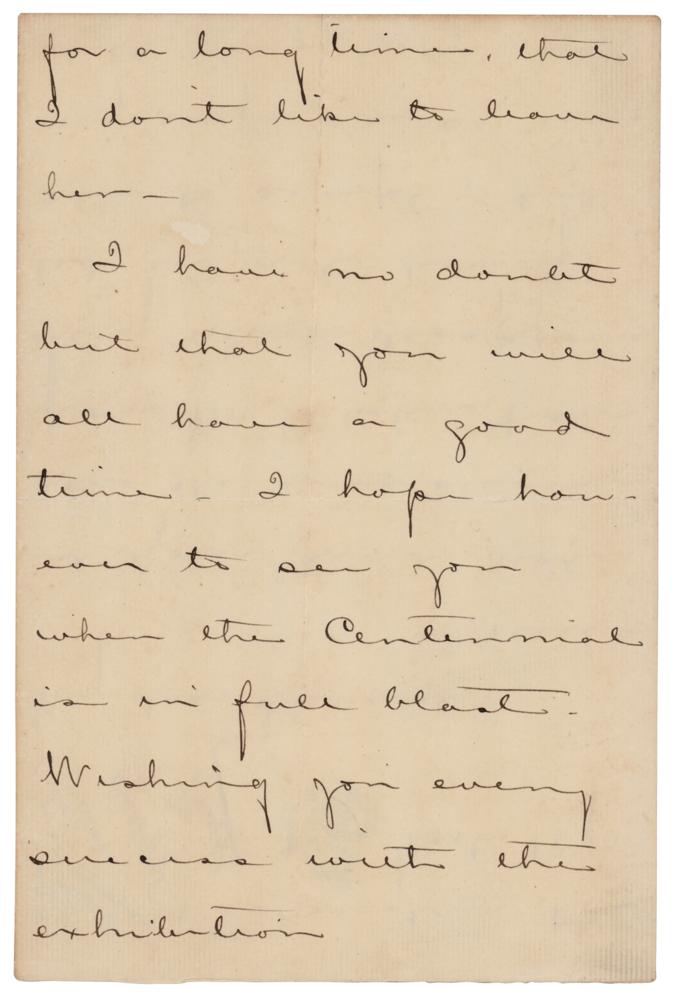 for a long time, that
I don't like to leave
her —
I have no doubt
but that you will
all have a good
time - I hope how-
ever to see you
when the Centennial
is in full blast.
Wishing you every
success with the
exhibition